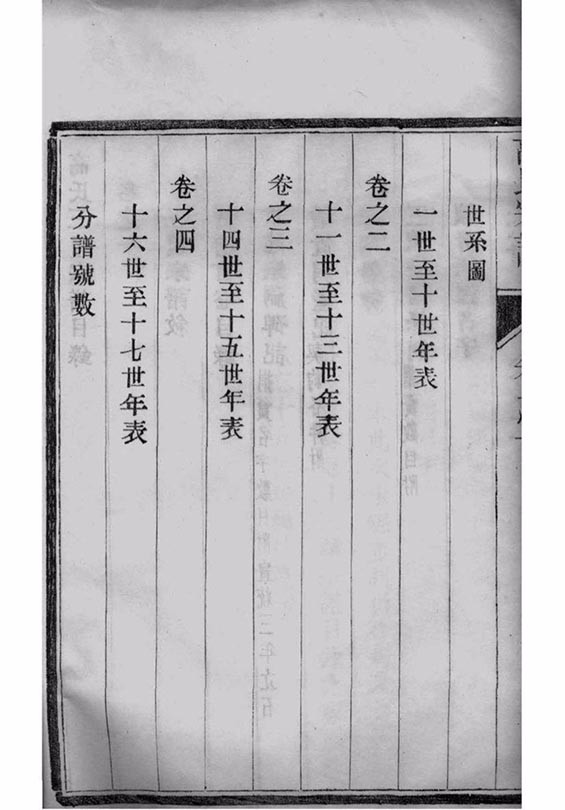 世系圖
一世至十世年表
卷之二
十一世至十三世年表
卷之三
十四世至十五世年表
卷之四
十六世至十七世年表
分譜號數